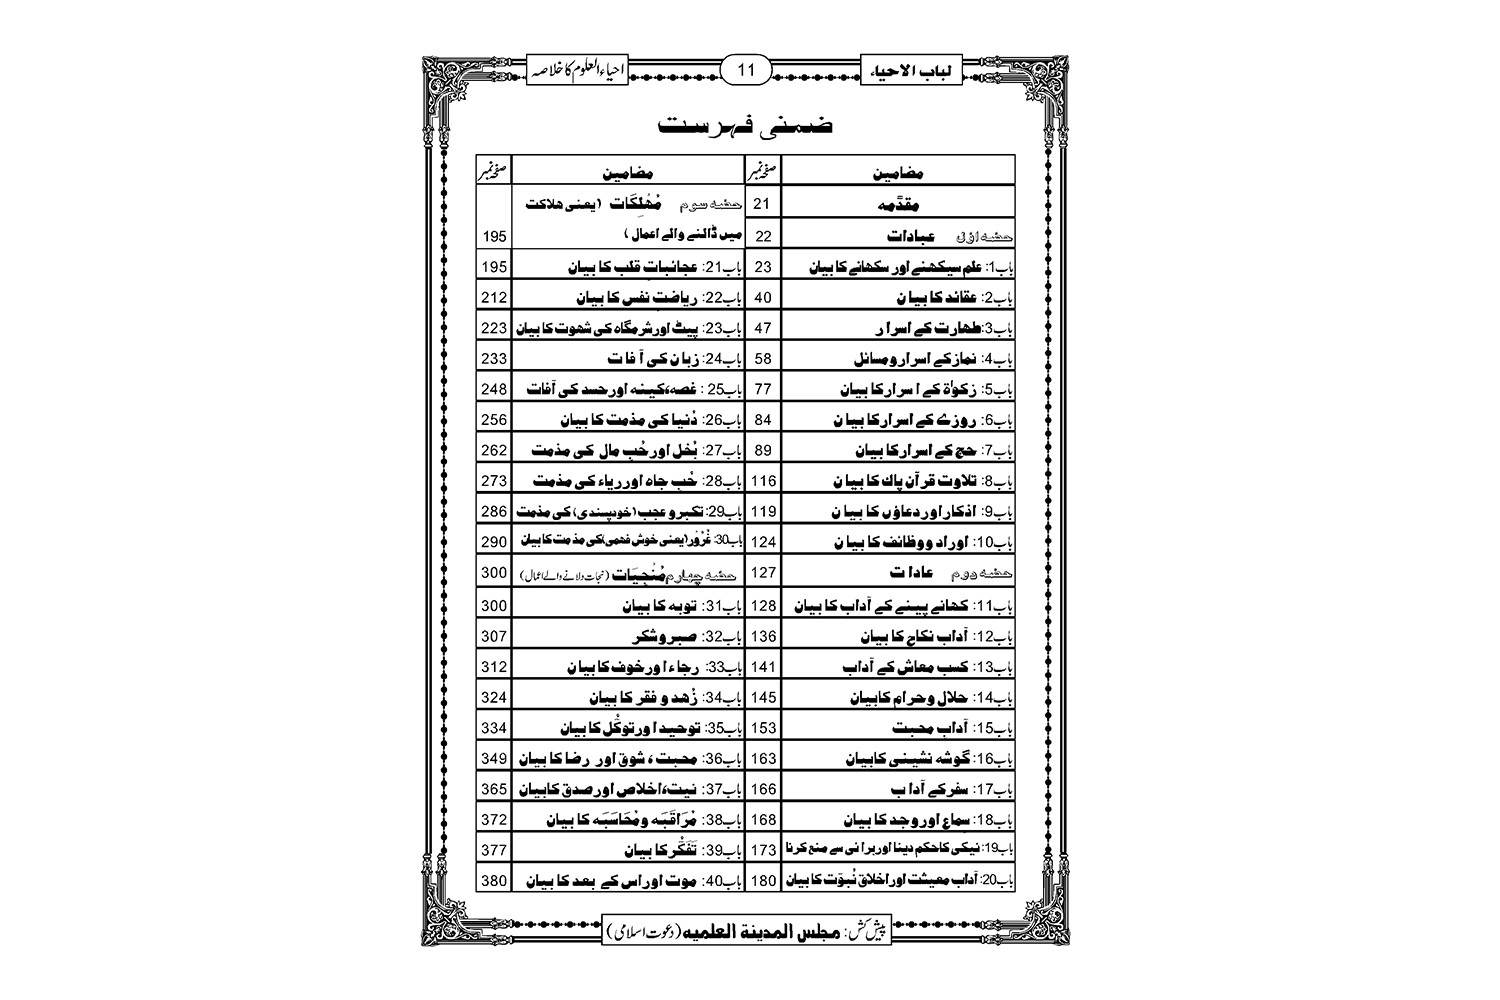 لباب الاحیاء
11
احیاء العلوم کا خلاصہ
ضمنی فہرست
مضامین صفحہ نمبر
مقدّمه 21
حصّہ اوّل عبادات 22
باب1: علم سیکھنے اور سکھانے کا بیان 23
باب2: عقائد کا بیان 40
باب3: طہارت کے اسرار 47
باب4: نماز کے اسرار و مسائل 58
باب5: زکوٰۃ کے اسرار کا بیان 77
باب6: روزے کے اسرار کا بیان 84
باب7: حج کے اسرار کا بیان 89
باب8: تلاوت قرآن پاک کا بیان 116
باب9: اذکار اور دعاؤں کا بیان 119
باب10: اوراد و وظائف کا بیان 124
حصّہ دوم عادات 127
باب11: کھانے پینے کے آداب کا بیان 128
باب12: آداب نکاح کا بیان 136
باب13: کسب معاش کے آداب 141
باب14: حلال وحرام کا بیان 145
باب15: آداب محبت 153
باب16: گوشہ نشینی کا بیان 163
باب17: سفر کے آداب 166
باب18: سماع اور وجد کا بیان 168
باب19: نیکی کا حکم دینا اور برائی سے منع کرنا 173
باب20: آداب معیشت اور اخلاق نُبوّت کا بیان 180
مضامین صفحہ نمبر
حصّہ سوم مُہْلِکَات (یعنی ہلاکت
میں ڈالنے والے اعمال) 195
باب21: عجائبات قلب کا بیان 195
باب22: ریاضت نفس کا بیان 212
باب23: پیٹ اور شرمگاہ کی شہوت کا بیان 223
باب24: زبان کی آفات 233
باب25: غصہ، کینہ اور حسد کی آفات 248
باب26: دُنیا کی مذمت کا بیان 256
باب27: بُخل اور حُب مال کی مذمت 262
باب28: حُب جاہ اور ریاء کی مذمت 273
باب29: تکبر و عجب (خودپسندی) کی مذمت 286
باب30: غُرُوْر (یعنی خوش فہمی) کی مذمت کا بیان 290
حصّہ چہارم مُنْجِیَات (نجات دلانے والے اعمال) 300
باب31: توبہ کا بیان 300
باب32: صبر و شکر 307
باب33: رجاء اور خوف کا بیان 312
باب34: زُہد و فقر کا بیان 324
باب35: توحید اور توکُّل کا بیان 334
باب36: محبت ، شوق اور رضا کا بیان 349
باب37: نیت، اخلاص اور صدق کا بیان 365
باب38: مُرَاقَبَہ و مُحَاسَبَہ کا بیان 372
باب39: تَفَکُّر کا بیان 377
باب40: موت اور اس کے بعد کا بیان 380
پیش کش: مجلس المدینۃ العلمیہ (دعوت اسلامی)